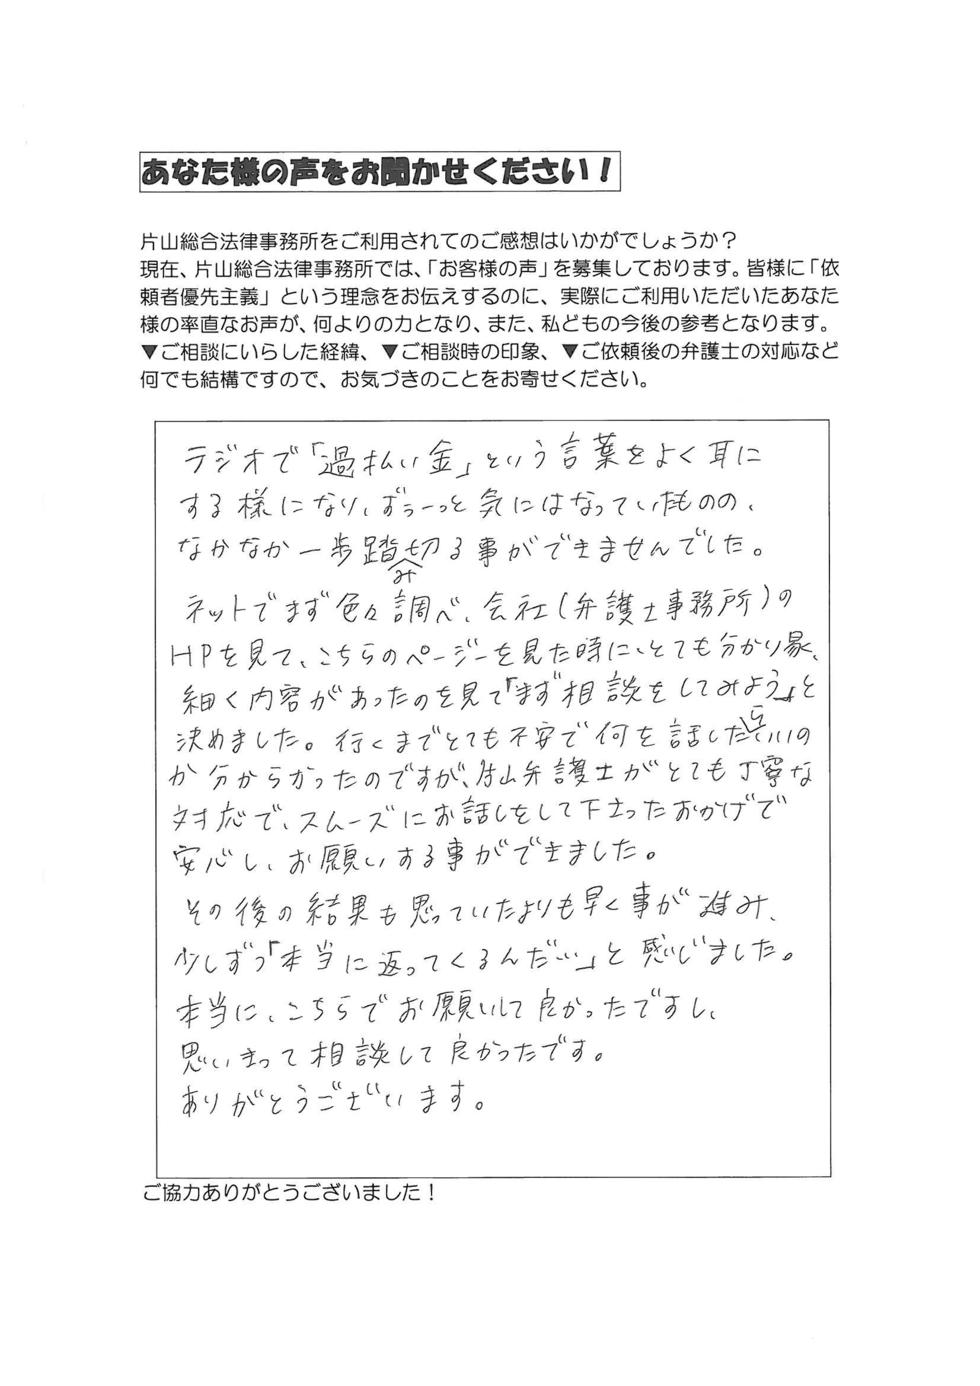 あなた様の声をお聞かせください！
片山総合法律事務所をご利用されてのご感想はいかがでしょうか？
現在、片山総合法律事務所では、「お客様の声」を募集しております。皆様に「依
頼者優先主義」という理念をお伝えするのに、実際にご利用いただいたあなた
様の率直なお声が、何よりの力となり、また、私どもの今後の参考となります。
▼ご相談にいらした経緯、▼ご相談時の印象、▼ご依頼後の弁護士の対応など
何でも結構ですので、お気づきのことをお寄せください。
ラジオで「過払い金」という言葉をよく耳に
する様になり、ずぅーっと気にはなっていたものの、
なかなか一歩踏み切る事ができませんでした。
ネットでまず色々調べ、会社(弁護士事務所)の
HPを見て、こちらのページーを見た時に、とても分かり易、
細く内容があったのを見て「まず相談をしてみよう」と
決めました。行くまでとても不安で何を話したらいいの
か分からかったのですが、片山弁護士がとても丁寧な
対応で、スムーズにお話しをして下さったおかげで
安心し、お願いする事ができました。
その後の結果も思っていたよりも早く事が進み、
少しずつ「本当に返ってくるんだ…」と感じました。
本当に、こちらでお願いして良かったですし、
思いきって相談して良かったです。
ありがとうございます。
ご協力ありがとうございました！